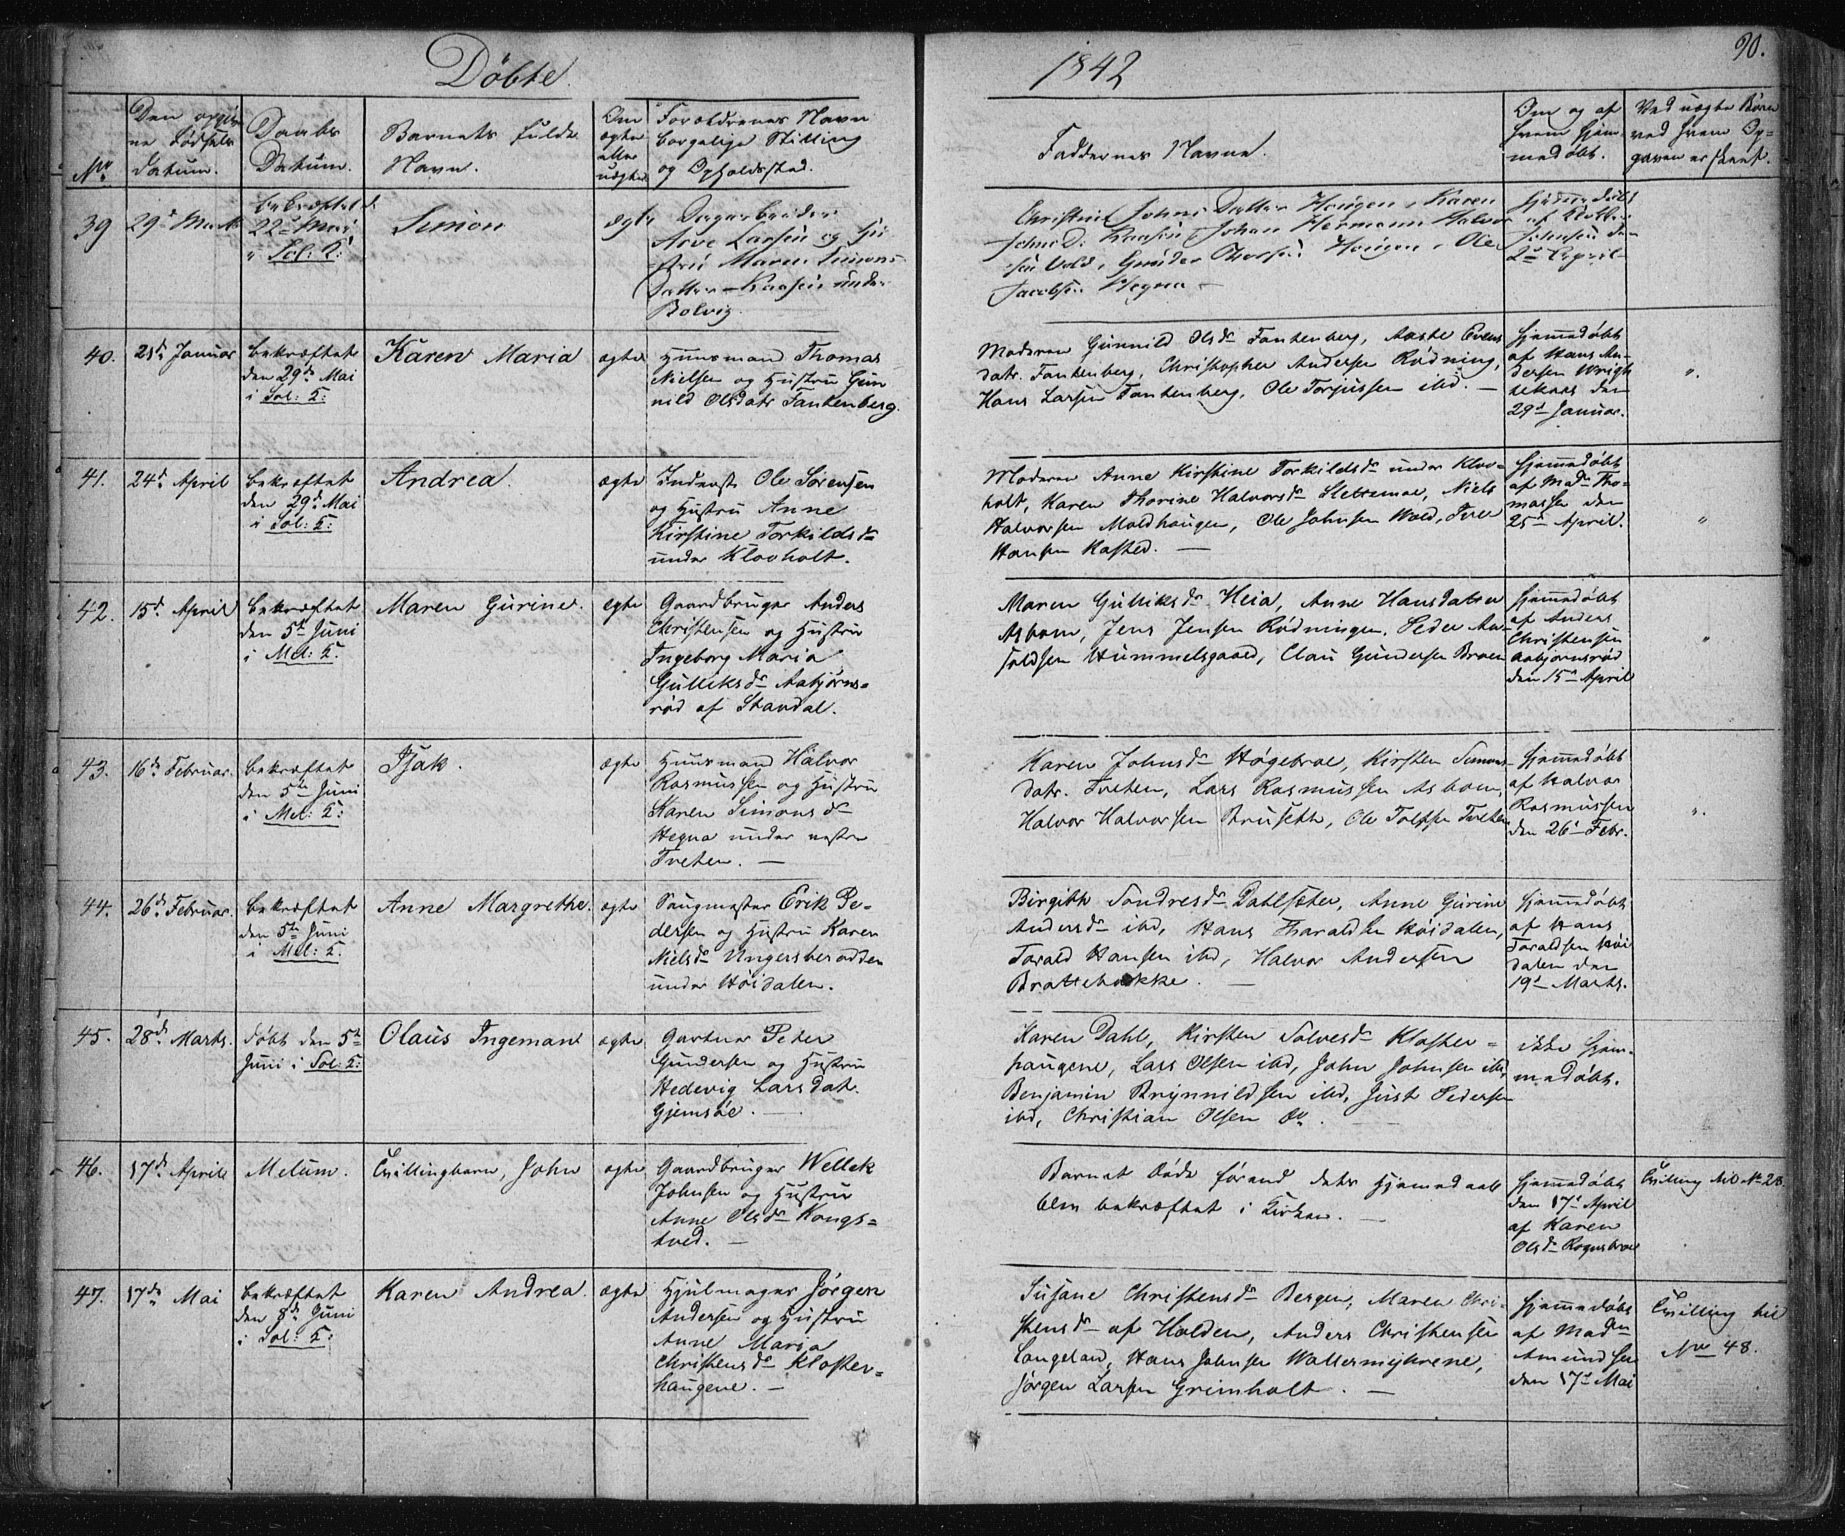 Döbte.
1842
90.
No
Den opgivne Fødsels Datum.
Daabs Datum.
Barnets fulde Navn.
Om ægte eller uægte
Forældrenes Navn borgelige Stilling og Opholdssted.
Faddernes Navne.
Om og af hvem hjemmedøbt.
Ved uægte Børn ved hvem Opgaven er skeet.
39
29d Marts
bekræftet d.
22d Mai
i Sol: K:
Simon
ægte
Arve Larsen og Hustru
Maren Simons
Datter
under
Bolvig.
Christine Johns Datter Haugen, Karen
Johan Hermann Halvor
sen Vold, Gunder Thorsen Haugen, Ole
Jacobsen Hegna –
Hjemmedøbt
af
Johnsen den
2d April
40.
21d Januar
bekræftet
den 29d Mai
i Sol: K:
Karen Maria
ægte
Huusmand Thomas
Nielsen og Hustru Gun
nild Olsdatr Fantenberg.
Moderen Gunnild Olsdr Fantenberg, Aaste Evens
datr. Fantenberg, Christopher Andersen Rødning,
Hans Larsen Fantenberg, Ole Torjussen ibd. –
Hjemmedøbt
af Hans An-
dersen
den
29d Januar.
"
41.
24d April
bekræftet
den 29d Mai
i Sol: K:
Andrea.
ægte
Inderst Ole Sørensen
og Hustru Anne
Kirstine Torkildsdr
under Klovholt.
Moderen Anne Kirstine Torkildsdr under Klov-
holt, Karen Thorine Halvorsdr Slettemoe, Niels
Halvorsen Moldhaugen, Ole Johnsen Wold, Iver
Hansen Kasted. –
Hjemmedøbt
af Madm Tho-
massen den
25d April.
"
42.
15d April
bekræftet
den 5te Juni
i Mel: K:
Maren Gurine.
ægte
Gaardbruger Anders
Christensen og Hustru
Ingeborg Maria
Gulliksdr Aabjørns-
rød af Skandal.
Maren Gulliksdr Heia, Anne Hansdatter
Asbom, Jens Jensen Rødningen, Peder An-
Hummelsgaard, Claus Gundersen
Hjemmedøbt
af Anders
Christensen
Aabjørnsrød
den 15d April
"
43.
16d Februar.
bekræftet
den 5te Juni
i Mel: K:
Isak.
ægte
Huusmand Halvor
Rasmussen og Hustru
Karen Simonsdr
Hegna under nedre
Tveten. –
Karen Johnsdr Høgebroe, Kirsten Simons-
datr. Tveten, Lars Rasmussen Asbom,
Halvor Halvorsen Bruseth, Ole Tolfsen Tveten
Hjemmedøbt
af Halvor
Rasmussen
den 26d Febr.
"
44.
26d Februar.
bekræftet
den 5te Juni
i Mel: K:
Anne Margrethe.
ægte
Saugmester Erik Pe-
dersen og Hustru Karen
Nielsdr Ungersberodden
under Høidalen.
Birgith Sondresdr Dahlsæter, Anne Gurine
Andersdr ibd, Hans Tharaldsen Høidalen,
Torald Hansen ibd, Halvor Andersen
Brattebakke. –
Hjemmedøbt
af Hans
Toraldsen Høi
dalen den
19d Marts.
45.
28d Marts.
døbt den 5te
Juni i Sol: K:
Olaus Ingeman
ægte
Gartner Peter
Gundersen og Hustru
Hedevig Larsdatr.
Gjemsøe. –
Karen Dahl, Kirsten Solvesdr Kloster-
haugene, Lars Olsen ibd, John Johnsen ibd,
Benjamin Brynnildsen ibd, Just Pedersen
ibd, Christian Olsen do.
ikke hjem-
medøbt.
46.
17d April
Melum.
Tvillingbarn, John
ægte
Gaardbruger Wetlek
Johnsen og Hustru
Anne Olsdr Kongs-
tved. –
Barnet døde førend dets Hjemmedaab
blev bekræftet i Kirken. –
Hjemmedøbt
den 17d April
af Karen
Olsdr Rognsbroe
Tvilling til No 28
47.
17de Mai
bekræftet
den 8d Juni
i Sol: K:
Karen Andrea.
ægte
Hjulmager Jørgen
Andersen og Hustru
Anne Maria
Christensdr Kloster-
haugene. –
Susane Christensdr Bergen, Maren Chri-
stensdr af Holden, Anders Christensen
Langeland, Hans Johnsen Waltermyhrene,
Jørgen Larsen Grimholt. –
Hjemmedøbt
af Madm
Amundsen
den 17d Mai
Tvilling til
No 48.